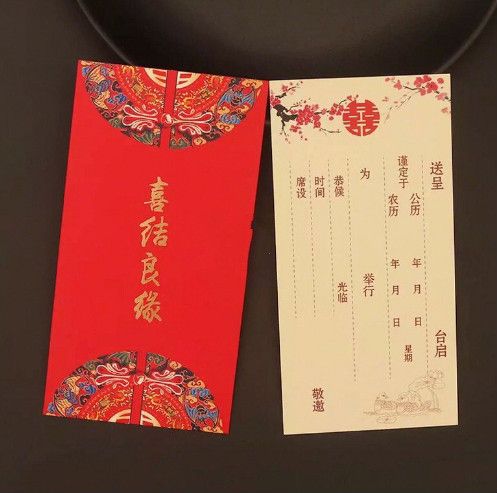 喜结良缘
囍
送呈 台启
谨定于
公历 年 月 日
农历 年 月 日
星期
为 举行
恭候 光临
时间
席设
敬邀